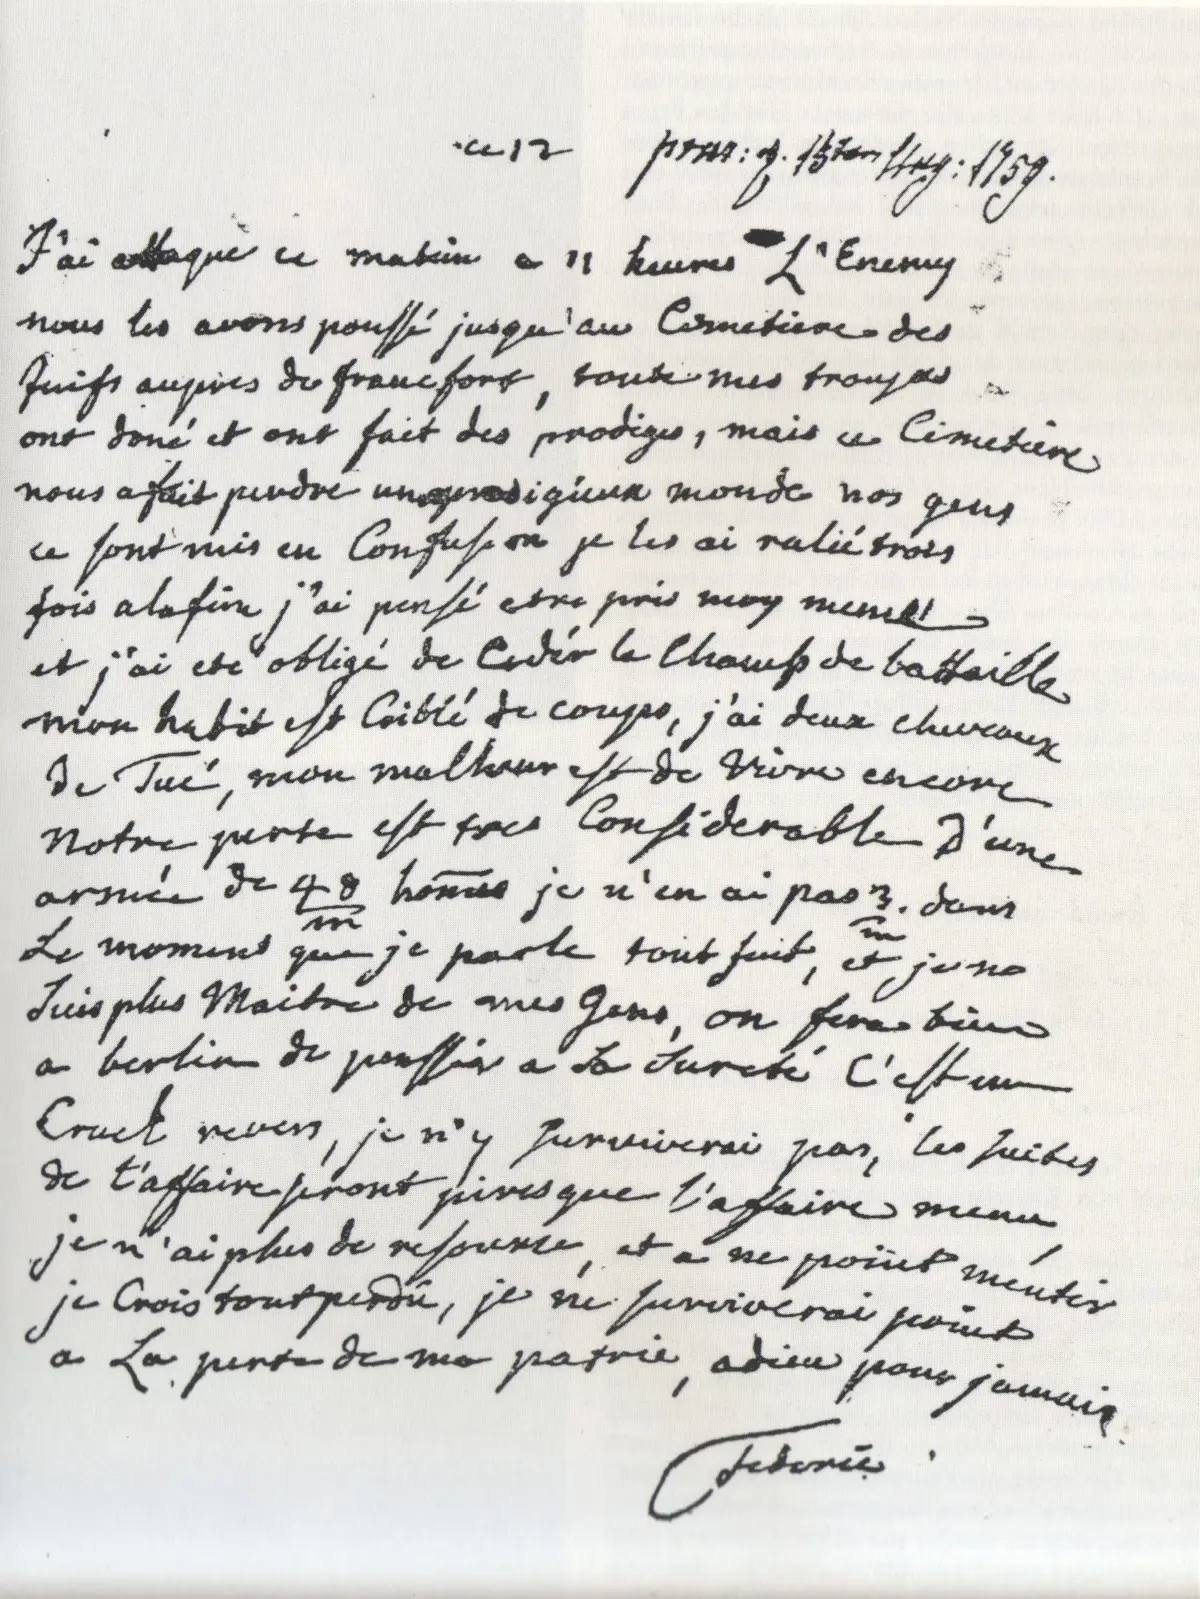 ce 12 præs: d. 13ten Aug: 1759.
J'ai attaqué ce matin a 11 heures L'Enemy
nous les avons poussé jusqu'au Cemetiere des
Juifs aupres de francfort, toute mes troupes
ont doné et ont fait des prodiges, mais ce Cimetière
nous a fait perdre un prodigieux monde nos gens
ce sont mis en Confusion je les ai ralié trois
fois a la fin j'ai pensé etre pris moy meme
et j'ai eté obligé de Cedér le Champ de battaille
mon habit est Criblé de coups, j'ai deux chevaux
de Tué, mon malheur est de Vivre encore
Notre perte est tres Considerable D'une
armée de 48 m homes je n'en ai pas 3. m dans
Le moment que je parle tout fuit, et je ne
suis plus Maitre de mes Gens, on fera bien
a berlin de penssér a sa sureté C'est un
Cruel revers, je n'y surviverai pas, les suites
de l'affaire seront pires que l'affaire meme
je n'ai plus de resource, et a ne point méntir
je Crois tout perdû, je ne surviverai point
a La perte de ma patrie, adieu pour jamais
Federic